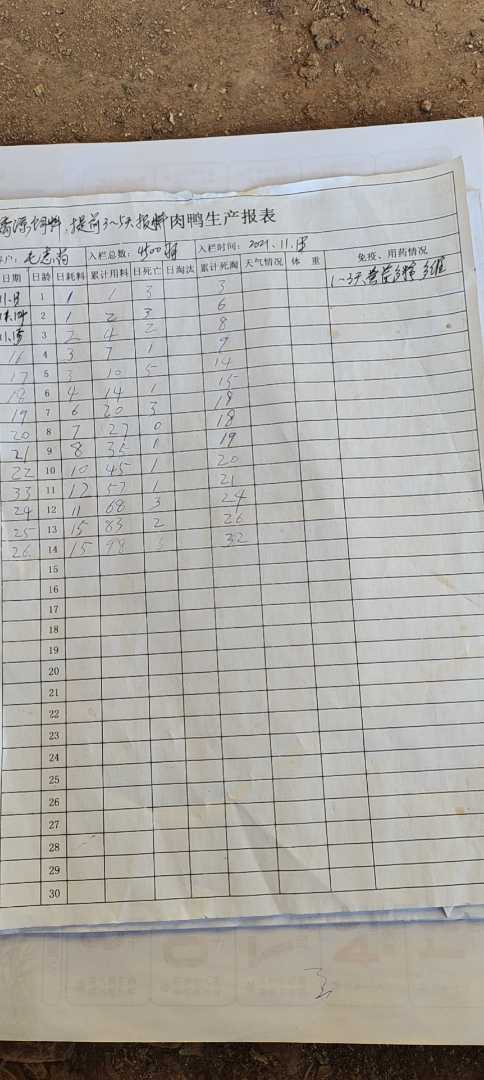 源饲料,提前3~5天报料肉鸭生产报表
户: 入栏总数: 4500 入栏时间: 2021.11. 免疫、用药情况
日期 日龄 日耗料 累计用料 日死亡 日淘汰 累计死淘 天气情况 体 重
1 1 1 3 3 1~3天 多维
11.14 2 1 2 3 6
11.15 3 2 4 2 8
16 4 3 7 1 9
17 5 3 10 5 14
18 6 4 14 1 15
19 7 6 20 3 18
20 8 7 27 0 18
21 9 8 35 1 19
22 10 10 45 1 20
33 11 12 57 1 21
24 12 11 68 3 24
25 13 15 83 2 26
26 14 15 98 32
15
16
17
18
19
20
21
22
23
24
25
26
27
28
29
30